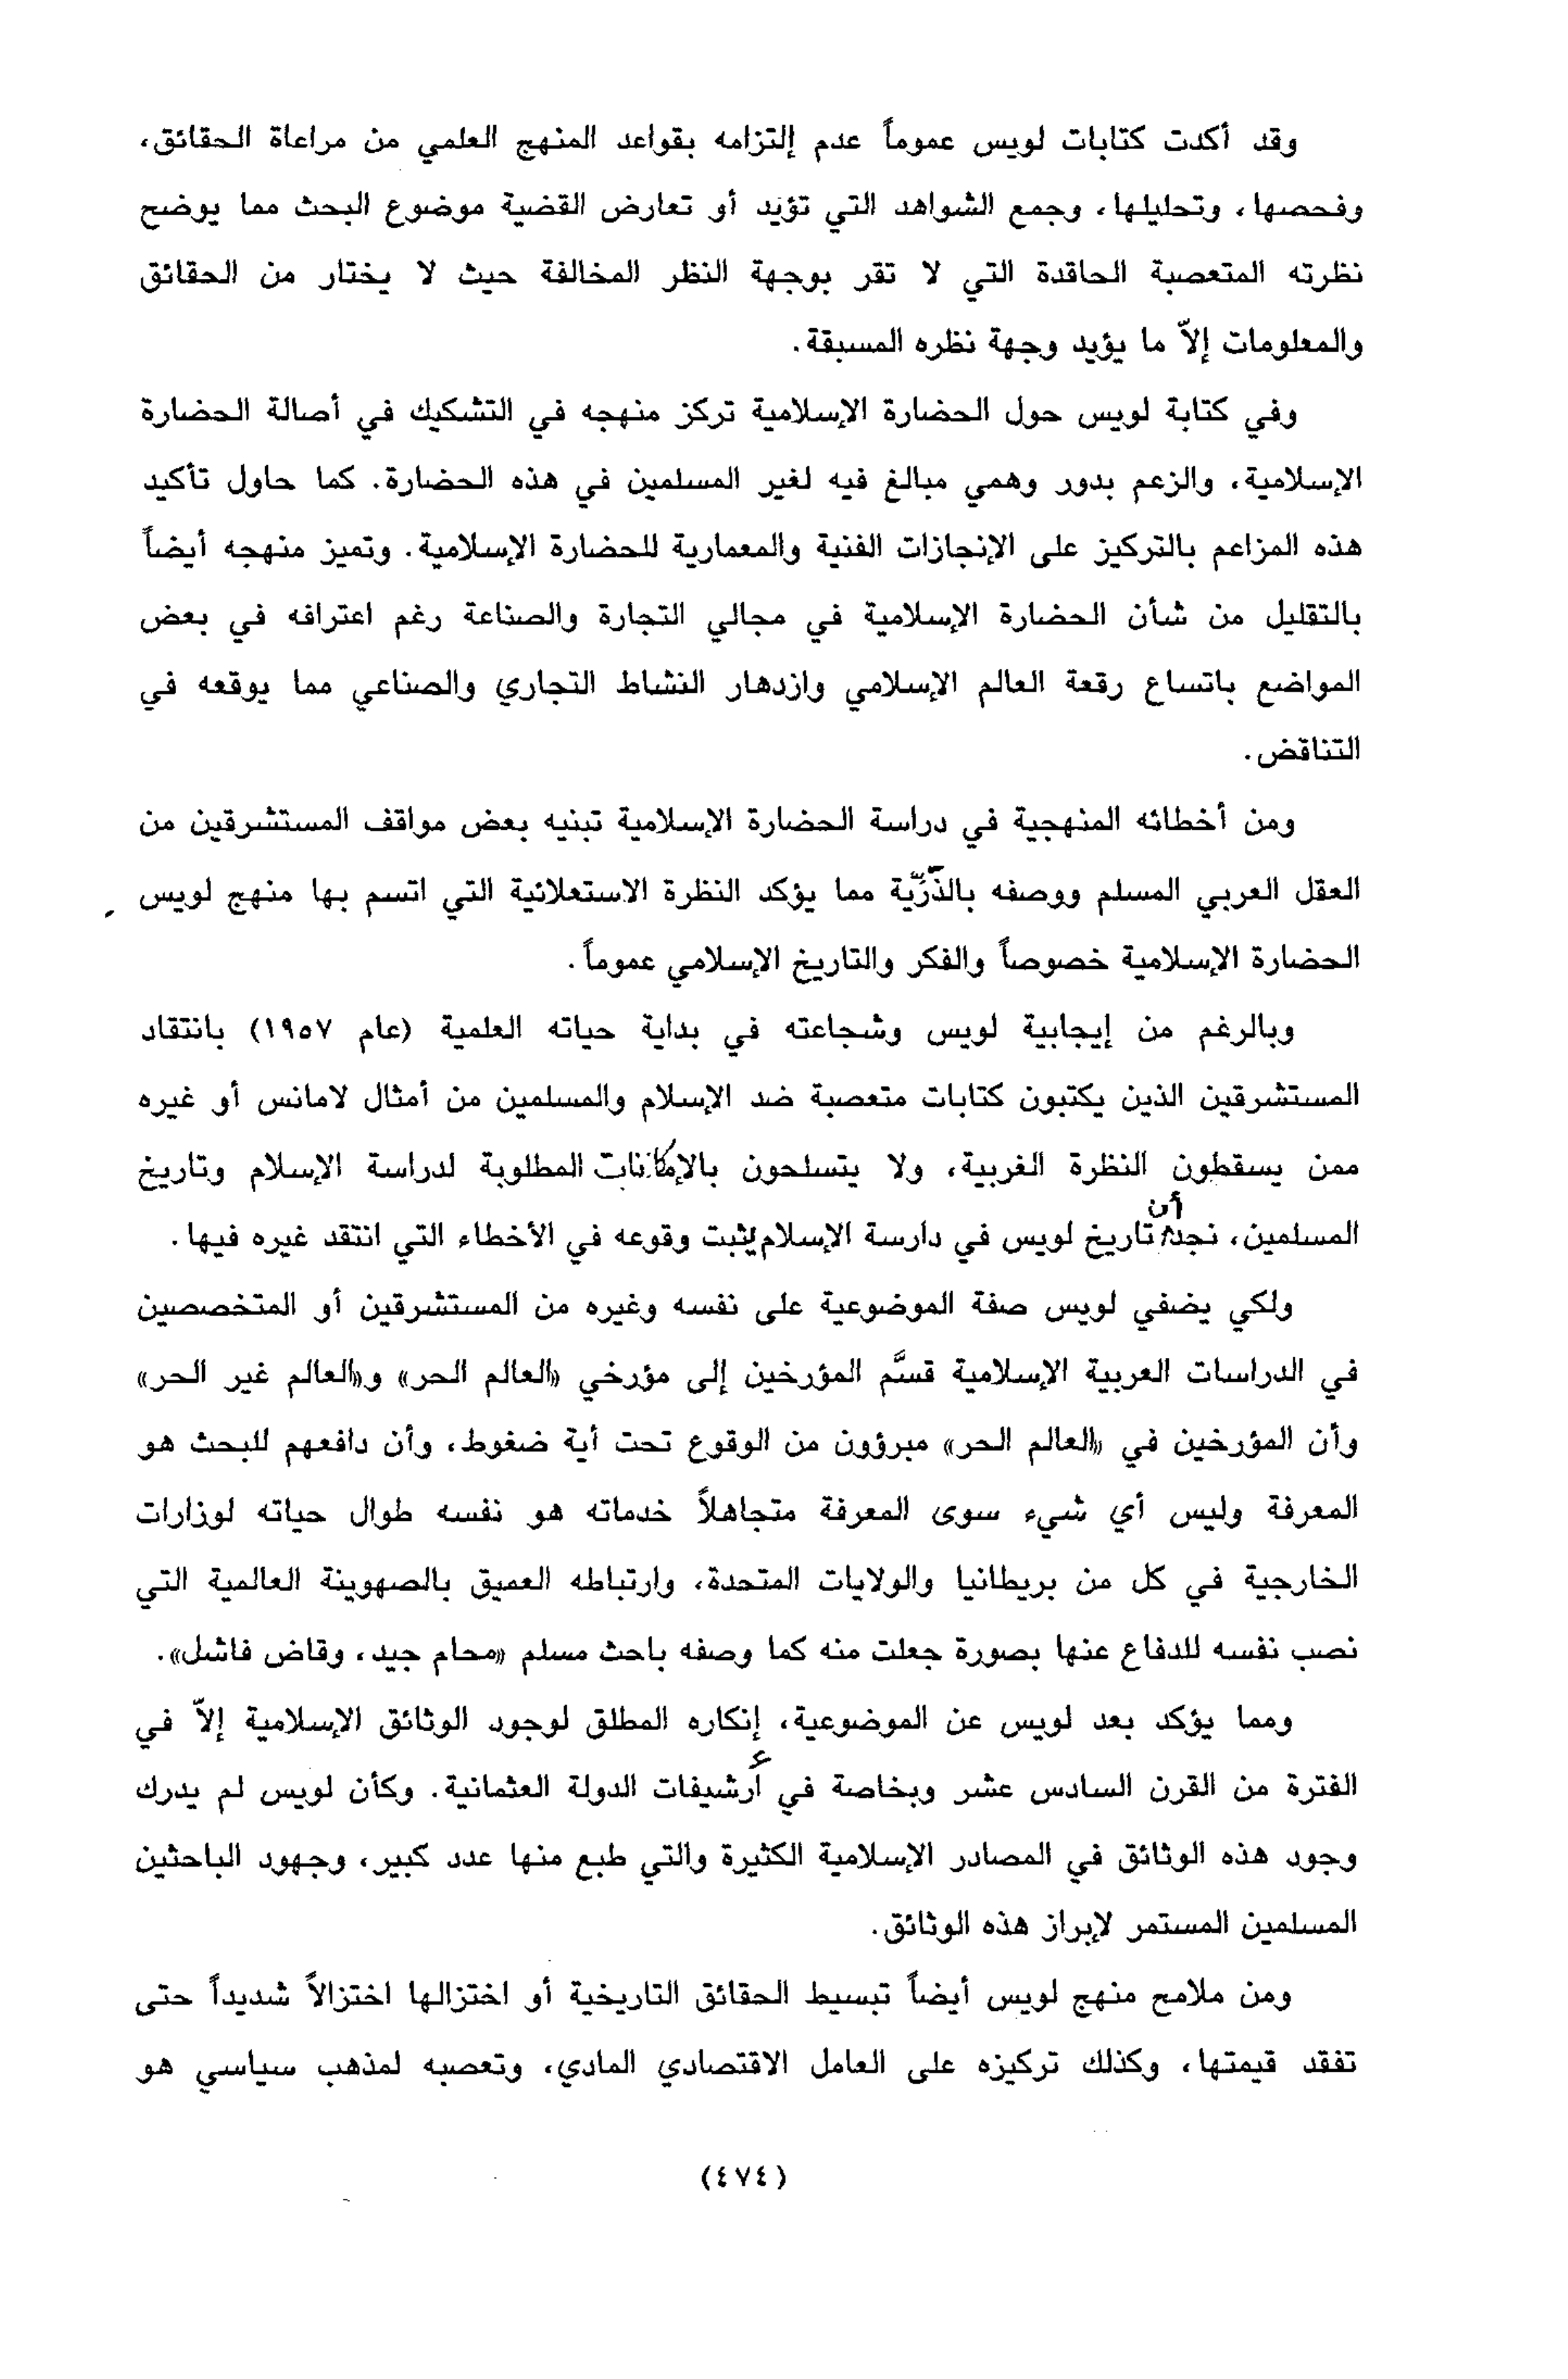 وقد أكدت كتابات لويس عموماً عدم إلتزامه بقواعد المنهج العلمي من مراعاة الحقائق،
وفحصها، وتحليلها، وجمع الشواهد التي تؤيد أو تعارض القضية موضوع البحث مما يوضح
نظرته المتعصبة الحاقدة التي لا تقر بوجهة النظر المخالفة حيث لا يختار من الحقائق
والمعلومات إلاّ ما يؤيد وجهة نظره المسبقة.
وفي كتابة لويس حول الحضارة الإسلامية تركز منهجه في التشكيك في أصالة الحضارة
الإسلامية، والزعم بدور وهمي مبالغ فيه لغير المسلمين في هذه الحضارة. كما حاول تأكيد
هذه المزاعم بالتركيز على الإنجازات الفنية والمعمارية للحضارة الإسلامية. وتميز منهجه أيضاً
بالتقليل من شأن الحضارة الإسلامية في مجالي التجارة والصناعة رغم اعترافه في بعض
المواضع باتساع رقعة العالم الإسلامي وازدهار النشاط التجاري والصناعي مما يوقعه في
التناقض.
ومن أخطائه المنهجية في دراسة الحضارة الإسلامية تبنيه بعض مواقف المستشرقين من
العقل العربي المسلم ووصفه بالذّرّية مما يؤكد النظرة الاستعلائية التي اتسم بها منهج لويس
الحضارة الإسلامية خصوصاً والفكر والتاريخ الإسلامي عموماً.
وبالرغم من إيجابية لويس وشجاعته في بداية حياته العلمية (عام ١٩٥٧) بانتقاد
المستشرقين الذين يكتبون كتابات متعصبة ضد الإسلام والمسلمين من أمثال لامانس أو غيره
ممن يسقطون النظرة الغربية، ولا يتسلحون بالإمكانات المطلوبة لدراسة الإسلام وتاريخ
المسلمين، نجد أن تاريخ لويس في دارسة الإسلام يثبت وقوعه في الأخطاء التي انتقد غيره فيها.
ولكي يضفي لويس صفة الموضوعية على نفسه وغيره من المستشرقين أو المتخصصين
في الدراسات العربية الإسلامية قسَّم المؤرخين إلى مؤرخي «العالم الحر» و«العالم غير الحر»
وأن المؤرخين في «العالم الحر» مبرؤون من الوقوع تحت أية ضغوط، وأن دافعهم للبحث هو
المعرفة وليس أي شيء سوى المعرفة متجاهلاً خدماته هو نفسه طوال حياته لوزارات
الخارجية في كل من بريطانيا والولايات المتحدة، وارتباطه العميق بالصهوينة العالمية التي
نصب نفسه للدفاع عنها بصورة جعلت منه كما وصفه باحث مسلم «محام جيد، وقاض فاشل».
ومما يؤكد بعد لويس عن الموضوعية، إنكاره المطلق لوجود الوثائق الإسلامية إلاّ في
الفترة من القرن السادس عشر وبخاصة في أرشيفات الدولة العثمانية. وكأن لويس لم يدرك
وجود هذه الوثائق في المصادر الإسلامية الكثيرة والتي طبع منها عدد كبير، وجهود الباحثين
المسلمين المستمر لإبراز هذه الوثائق.
ومن ملامح منهج لويس أيضاً تبسيط الحقائق التاريخية أو اختزالها اختزالاً شديداً حتى
تفقد قيمتها، وكذلك تركيزه على العامل الاقتصادي المادي، وتعصبه لمذهب سياسي هو
(٤٧٤)